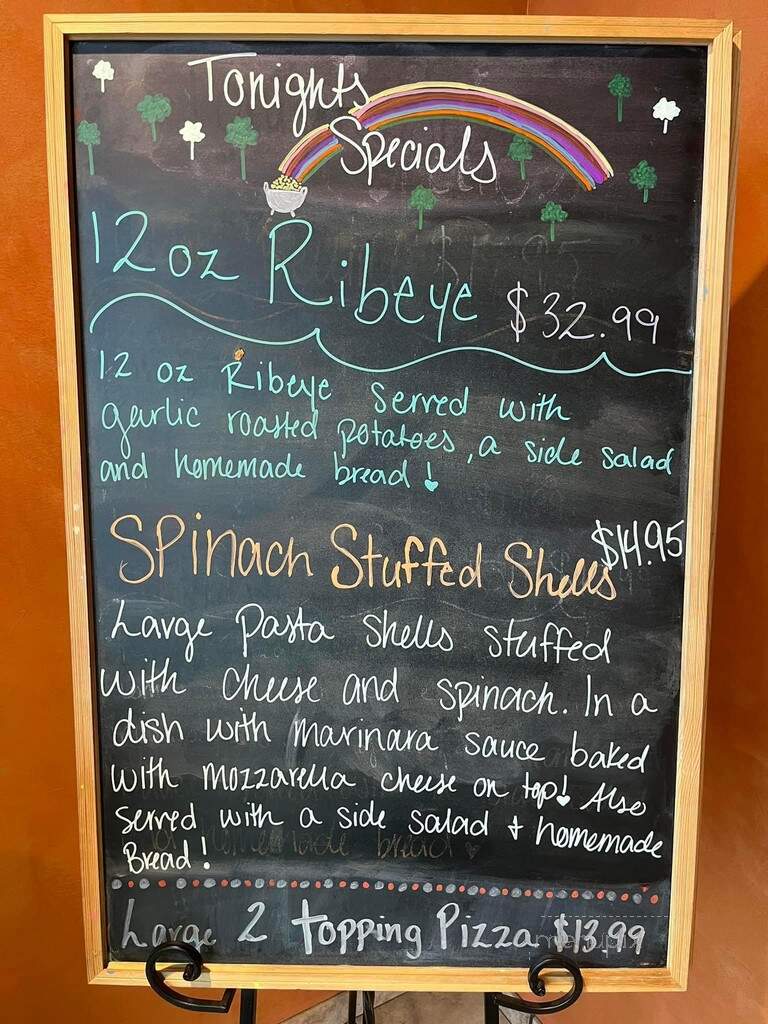 Tonights
Specials
12 oz Ribeye $32.99
12 oz Ribeye served with
garlic roasted potatoes, a side salad
and homemade bread!
Spinach Stuffed Shells $14.95
Large pasta shells stuffed
with cheese and spinach. In a
dish with marinara sauce baked
with mozzarella cheese on top! Also
served with a side salad + homemade
Bread!
homemade bread
Large 2 topping Pizza $13.99